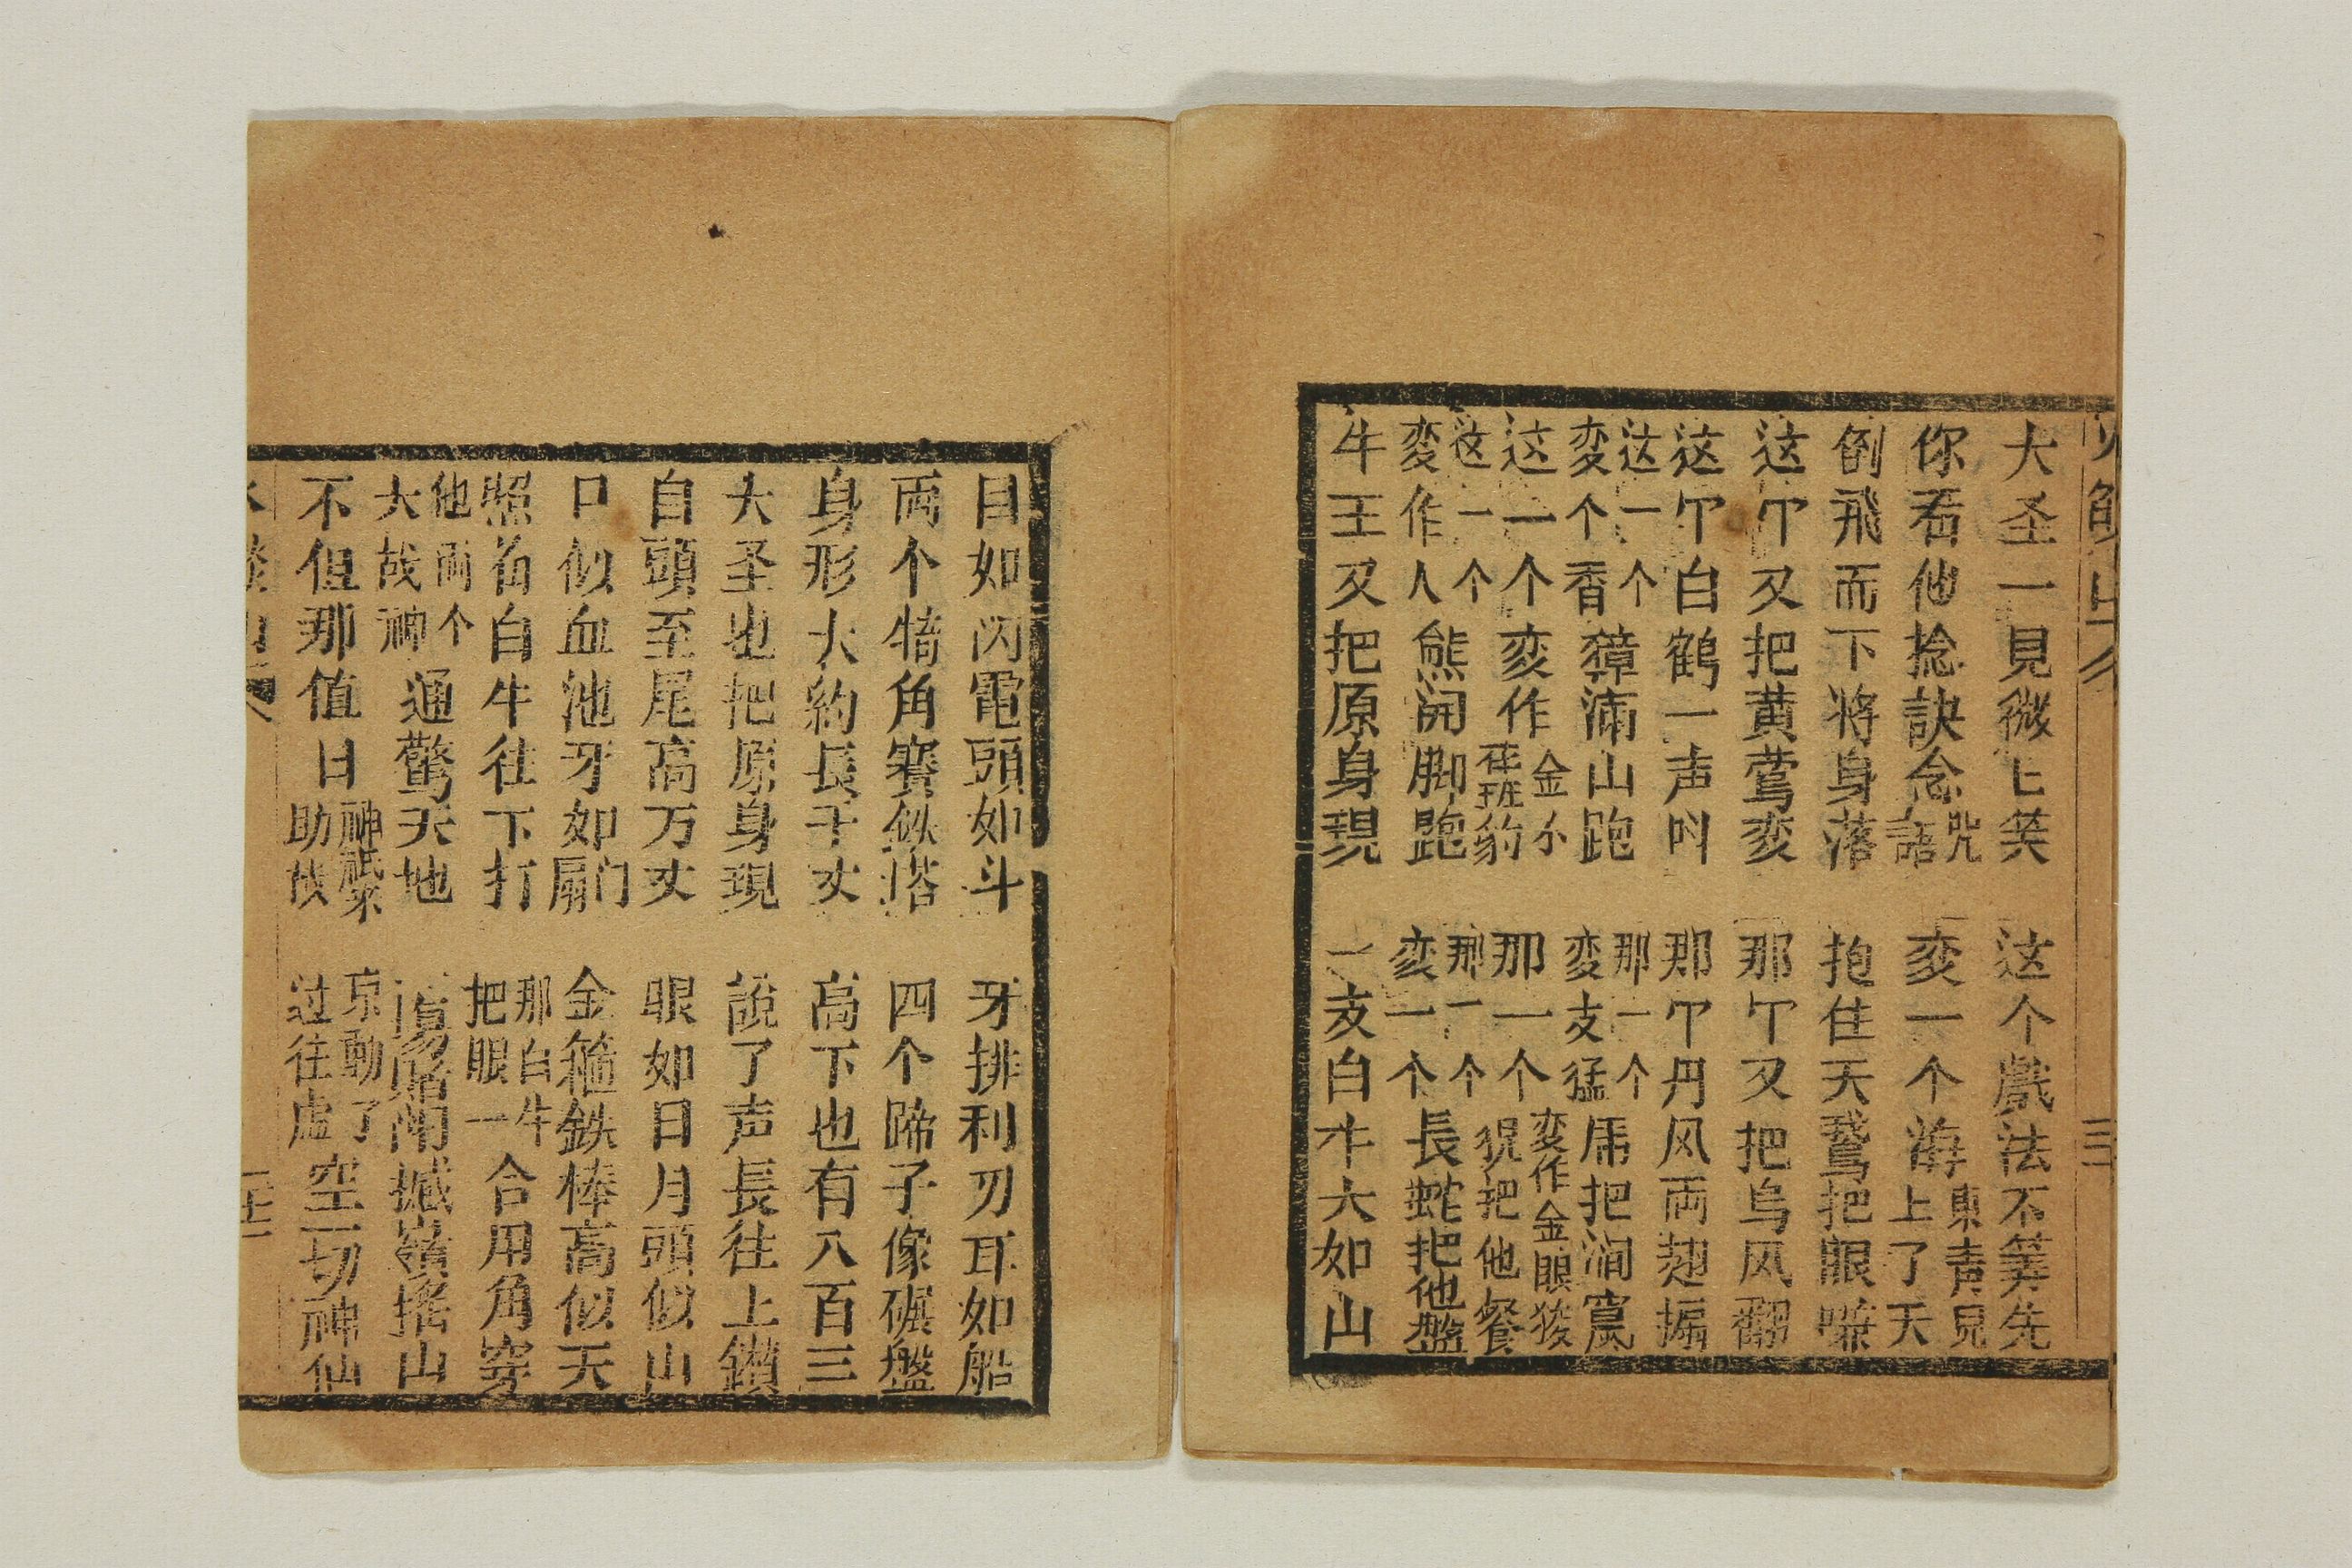 三
大圣一見微匕笑 这个戲法不筭先
你看他捻訣念咒語 变一个海東青見上了天
倒飛而下将身落 抱住天鵞把眼嗛
这个又把黄鶯变 那个又把乌风翻
这个白鶴一声叫 那个丹风両翅搧
这一个变个香獐滿山跑 那一个变支猛虎把澗
这一个变作金班豹 那一个变作金眼狻猊把他餐
这一个変作人熊闹脚跑 那一个变一个長蛇把他盤
牛王又把原身現 一支白牛大如山
目如闪電頭如斗 牙排利刃耳如船
両个犄角賽鉄塔 四个蹄子像碾盤
身形大約長千丈 高下也有八百三
大圣也把原身現 說了声長往上鑚
自頭至尾高万丈 眼如日月頭似山
口似血池牙如门扇 金箍鉄棒高似天
照着白牛往下打 那白牛把眼一合用角穿
他両个大战神通驚天地 賭闹撼嶺摇山
不但那值日神祗來助战 京動了过往虚空一切神仙